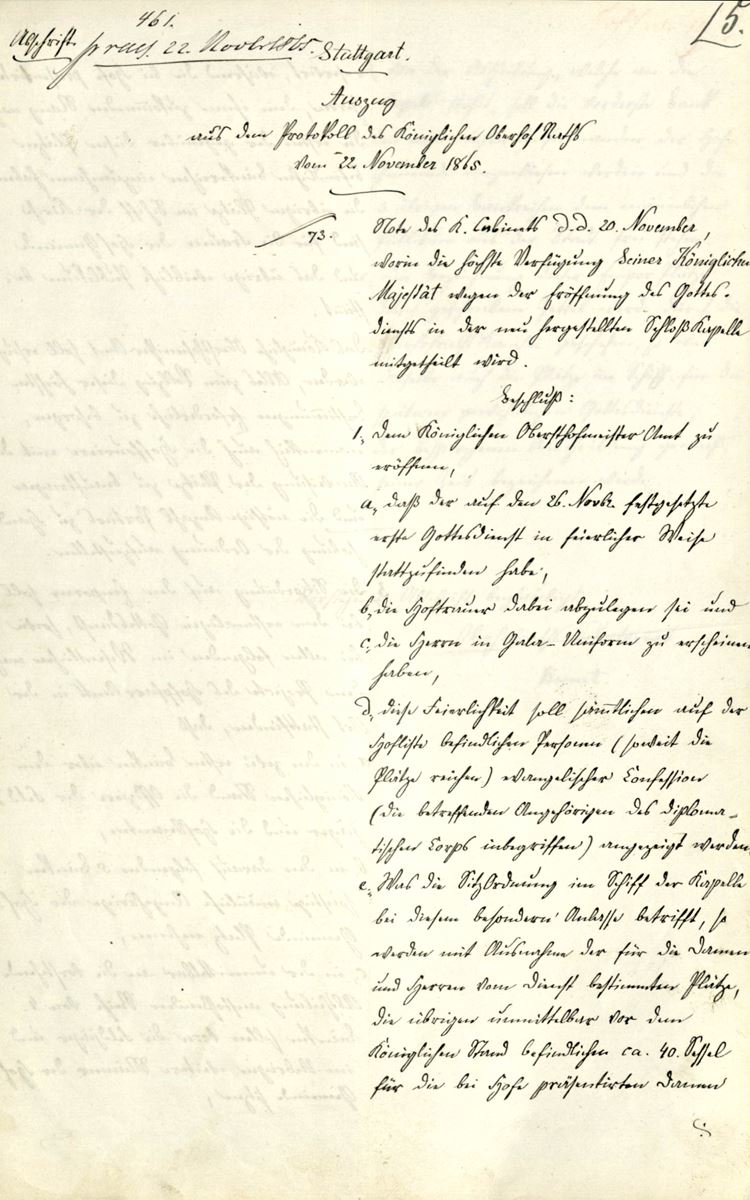 461.
15.
Abschrift.
praes. 22. Novbr 1865.
Stuttgart.
Auszug
aus dem Protokoll des Königlichen Oberhof Raths
vom 22. November 1865.
73.
Note des K. Cabinets d.d. 20. November,
worin die höchste Verfügung Seiner Königlichen
Majestät wegen der Eröffnung des Gottes-
diensts in der neu hergestellten Schloß Kapelle
mitgetheilt wird.
Beschluß:
1, dem Königlichen Obersthofmeister Amt zu
eröffnen,
a, daß der auf den 26. Novbr. festgesetzte
erste Gottesdienst in feierlicher Weise
stattzufinden habe,
b, die Hoftrauer dabei abzulegen sei und
c, die Herrn in Gala-Uniform zu erscheinen
haben,
d, diese Feierlichkeit soll sämtlichen auf der
Hofliste befindlichen Personen (soweit die
Plätze reichen) evangelischer Confession
(die betreffenden Angehörigen des diploma-
tischen Corps inbegriffen) angezeigt werden
e, Was die SitzOrdnung im Schiff der Kapelle
bei diesem besondern Anlasse betrifft, so
werden mit Ausnahme der für die Damen
und Herren vom Dienst bestimmten Plätze,
die übrigen unmittelbar vor dem
Königlichen Stand befindlichen ca. 40. Sessel
für die bei Hofe präsentirten Damen